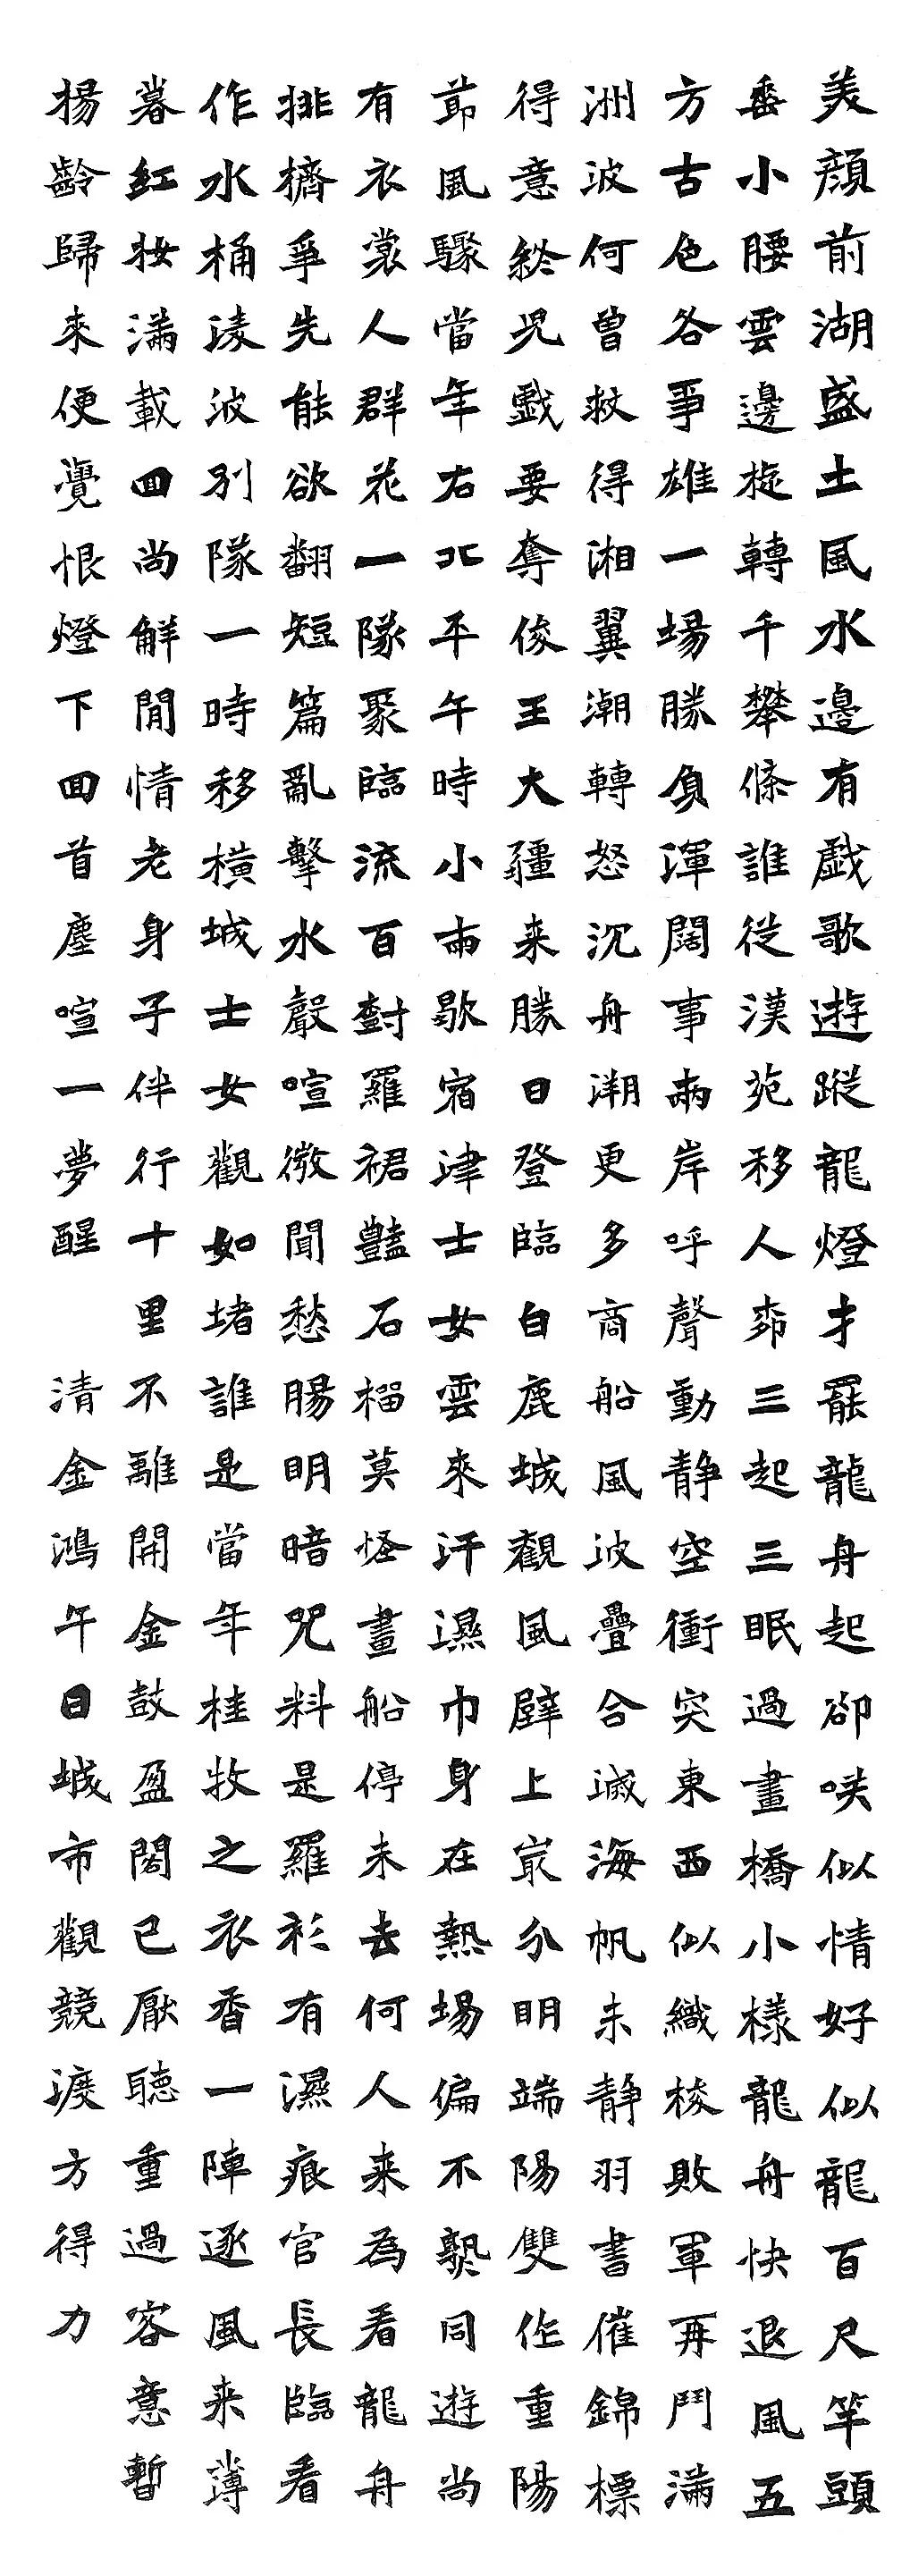 美顏前湖盛土風水邊有戲歌遊蹤龍燈才罷龍舟起卻咲似情好似龍百尺竿頭
垂小腰雲邊旋轉千攀條誰從漢苑移人柳三起三眠過畫橋小樣龍舟快退風五
方古色各爭雄一場勝負渾闊事兩岸呼聲動靜空衝突東西似織梭敗軍再鬥滿
洲波何曾救得湘翼潮轉怒沉舟溯更多商船風波疊合滅海帆未靜羽書催錦標
得意終兒戲要奪俊王大疆来勝日登臨白鹿城觀風壁上最分明端陽雙作重陽
節風驟當年右北平午時小雨歇宿津士女雲來汗濕巾身在熱場偏不熱同遊尚
有衣裳人群花一隊聚臨流百對羅裙豔石榴莫怪畫船停未去何人来為看龍舟
排擠爭先能欲翻短篇亂擊水聲喧微聞愁腸明暗咒料是羅衫有濕痕官長臨看
作水桶凌波別隊一時移橫城士女觀如堵誰是當年桂牧之衣香一陣逐風来薄
暮紅妝滿載回尚解閒情老身子伴行十里不離開金鼓盈闐已厭聽重過容意暫
揚齡歸來便覺恨燈下回首塵喧一夢醒 清金鴻午日城市觀競渡方得力